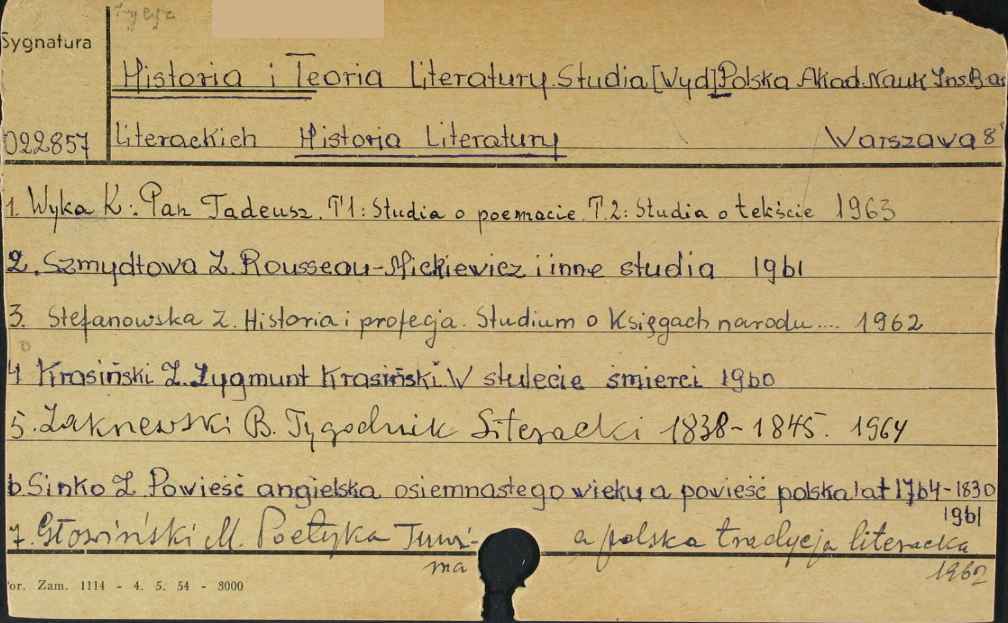 Sygnatura
Historia i Teoria Literatury. Studia [Wyd] Polska Akad. Nauk Ins. Ba
022857 literackich Historia Literatury Warszawa 8°
1. Wyka K: Pan Tadeusz. T1: Studia o poemacie. T.2: Studia o tekście 1963
2. Szmydtowa Z. Rousseau-Mickiewicz i inne studia 1961
3. Stefanowska Z. Historia i profecja. Studium o Księgach narodu.... 1962
4 Krasiński Z. Zygmunt Krasiński. W stulecie śmierci 1960
5. Zakrzewski B. Tygodnik Literacki 1838-1845. 1964
6. Sinko Z. Powieść angielska osiemnastego wieku a powieść polska lat 1764-1830
1961
7. Głowiński M. Poetyka Tuwi-
ma a polska tradycja literacka
1962
or. Zam. 1114 - 4. 5. 54 - 3000